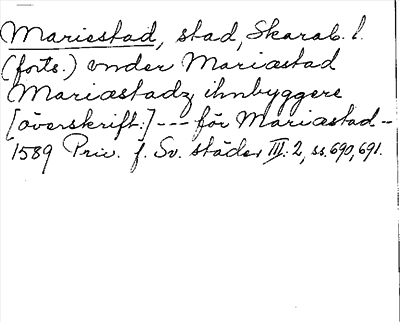 Mariestad, stad, Skarab. l.
(forts.) vnder Mariæstad
Mariæstadz ihnbyggere
[överskrift.] --- för Mariæstad -
1589 Priv. f. Sv. städer III:2, ss. 690, 691.